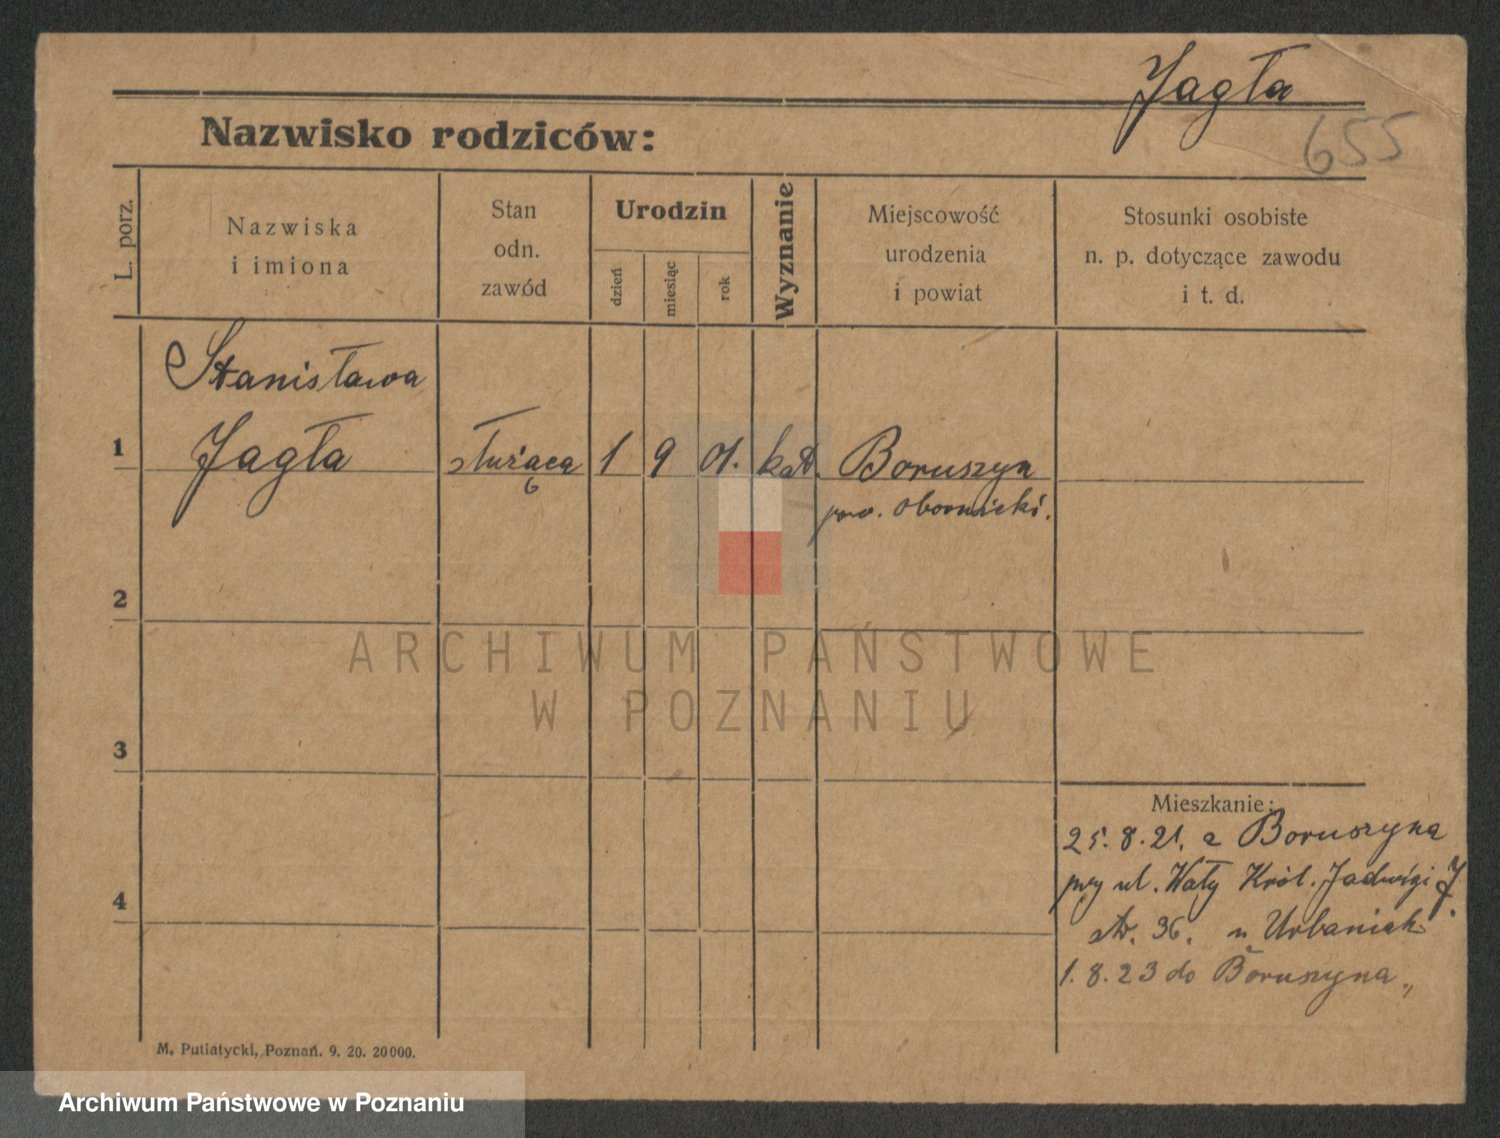 Jagła
655
Nazwisko rodziców:
L. porz.
Nazwiska
i imiona
Stan
odn.
zawód
Urodzin
dzień
miesiąc
rok
Wyznanie
Miejscowość
urodzenia
i powiat
Stosunki osobiste
n. p. dotyczące zawodu
i t. d.
Stanisława
1 Jagła służąca 1 9 01. kat. Boruszyn
pow. obornicki.
2
ARCHIWUM PAŃSTWOWE
W POZNANIU
3
Mieszkanie:
25. 8. 21. z Boruszyna
przy ul. Wały Król. Jadwigi
4
str. 36. u Urbaniak
1. 8. 23 do Boruszyna
M. Putiatycki, Poznań. 9. 20. 20000.
Archiwum Państwowe w Poznaniu